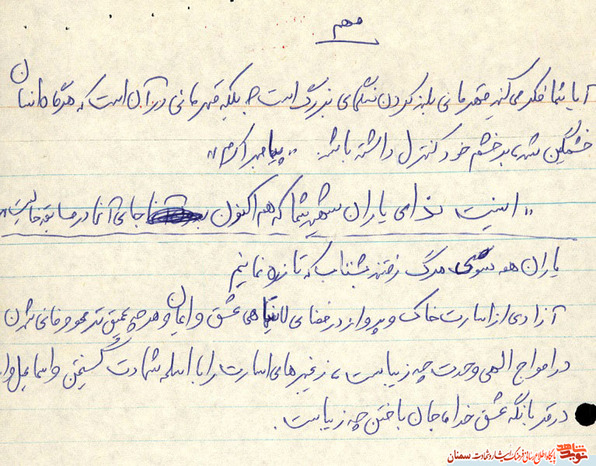 مهم
آیا شما فکر می کنید قهرمانی بلند کردن سنگهای بزرگ است؟ بلکه قهرمانی در آن است که هرگاه انسان
خشمگین شد، بر خشم خود کنترل داشته باشد. "پیامبر اکرم"
"اینست ندای یاران شهید شما که هم اکنون جای آنها در ما بین خالیست"
یاران همه سوی مرگ رفتند بشتاب که تا زره نمانیم
آزادی از اسارت خاک و پرواز در فضای لایتناهی عشق و ایمان و هر چه عمیق تر محو و فانی شدن
در امواج الهی وحدت چه زیباست، زنجیرهای اسارت را با اسلحه شهادت گسیختن و اسماعیل وار
در قربانگه عشق خدا، جان باختن چه زیباست.
نوید شاهد
پایگاه اطلاع رسانی فرهنگ ایثار و شهادت سمنان